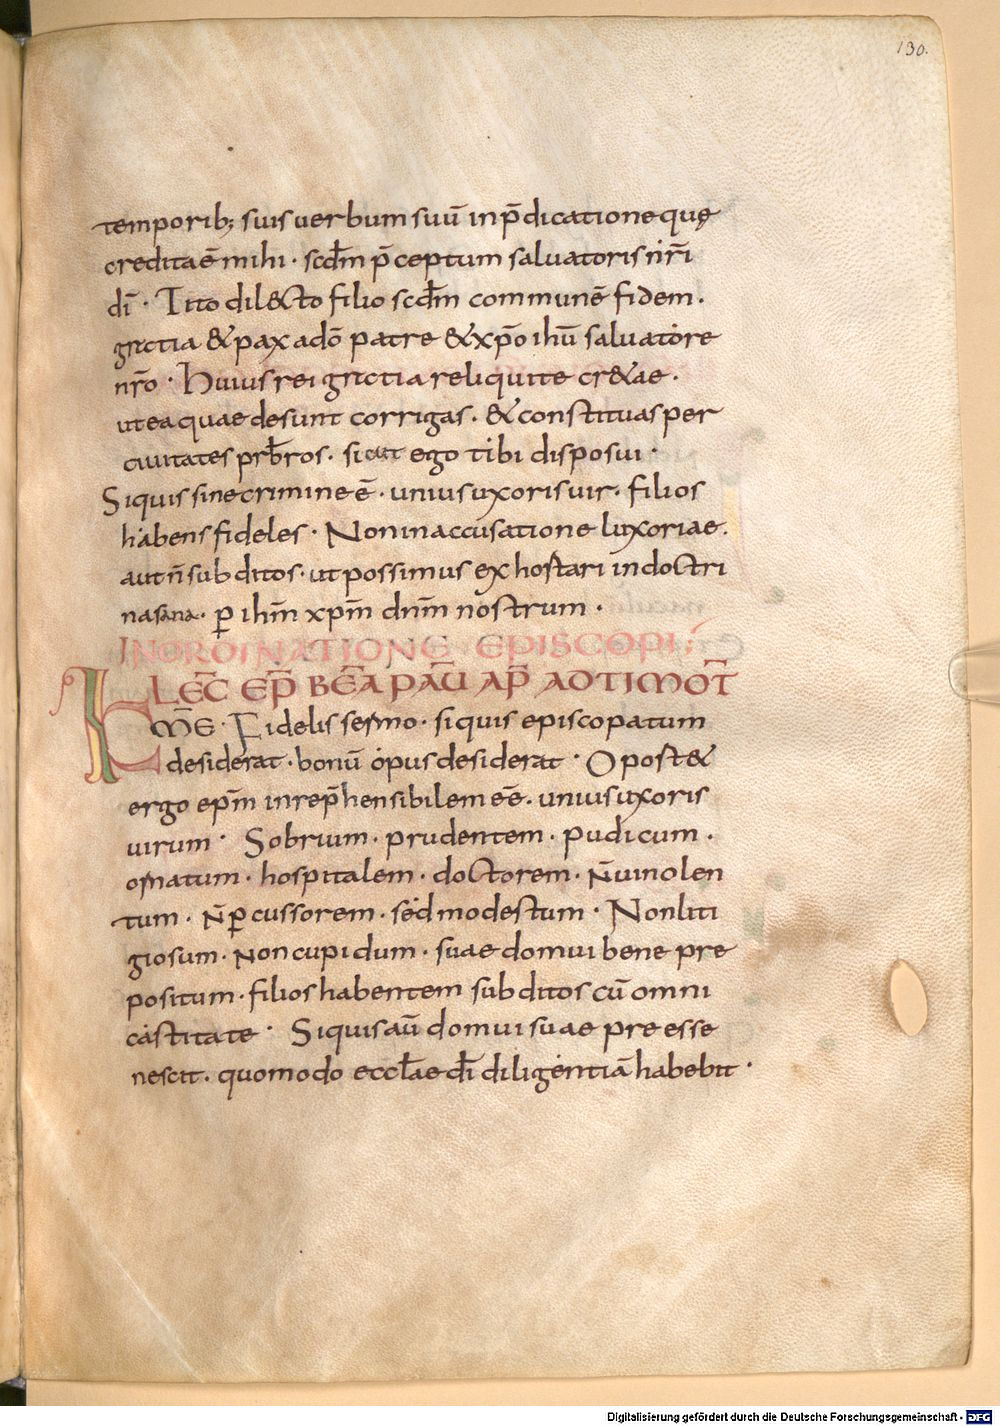 130.
temporib; suis uerbum suū in p̄dicatione quę
credita ē mihi · scd̄m p̄ceptum saluatoris nr̄i
dī · Tito dilecto filio scd̄m communē fidem ·
gratia & pax a dō patre & xp̄o ihū saluatore
nr̄o · Huius rei gratia reliqui te cr&ae ·
ut ea quae desunt corrigas · & constituas per
ciuitates prb̄ros · sicut ego tibi disposui ·
Siquis sine crimine ē · unius uxoris uir · filios
habens fideles · Non in accusatione luxoriae ·
aut n̄ subditos · ut possimus exhostari in doctri
na sana · ꝑ ihm̄ xpm̄ dnm̄ nostrum ·
IN ORDINATIONE EPISCOPI:
LEC̄ EP̄ BEĀ PAŪ AP̄ AD TIMOT̄
M̄E · Fidelis sermo · siquis episcopatum
desiderat · bonū opus desiderat · Oport&
ergo epm̄ inrep̄hensibilem eē · unius uxoris
uirum · Sobrium · prudentem · pudicum ·
ornatum · hospitalem · doctorem · N̄ uinolen
tum · N̄ ꝑcussorem · sed modestum · Non liti
giosum · Non cupidum · suae domui bene pre
positum · filios habentem subditos cū omni
castitate · Siquis aū domui suae preesse
nescit · quomodo eccl̄ae dī diligentiā habebit ·
Digitalisierung gefördert durch die Deutsche Forschungsgemeinschaft - DFG